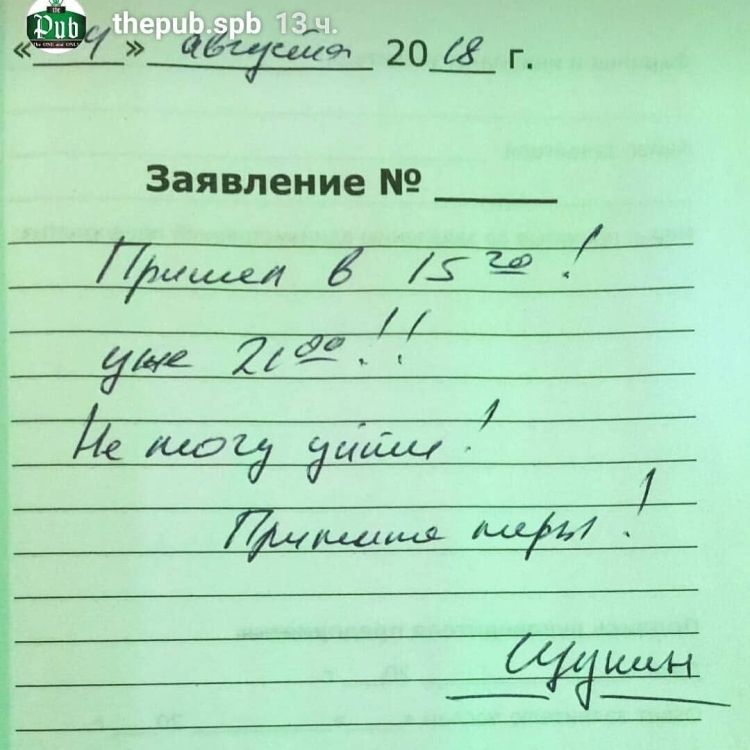 the
Pub
The ONE and ONLY
thepub.spb 13 ч.
«4» августа 2018 г.
Заявление № ____
Пришел в 15 20!
уже 21 00!!
Не могу уйти!
Примите меры!
Щукин